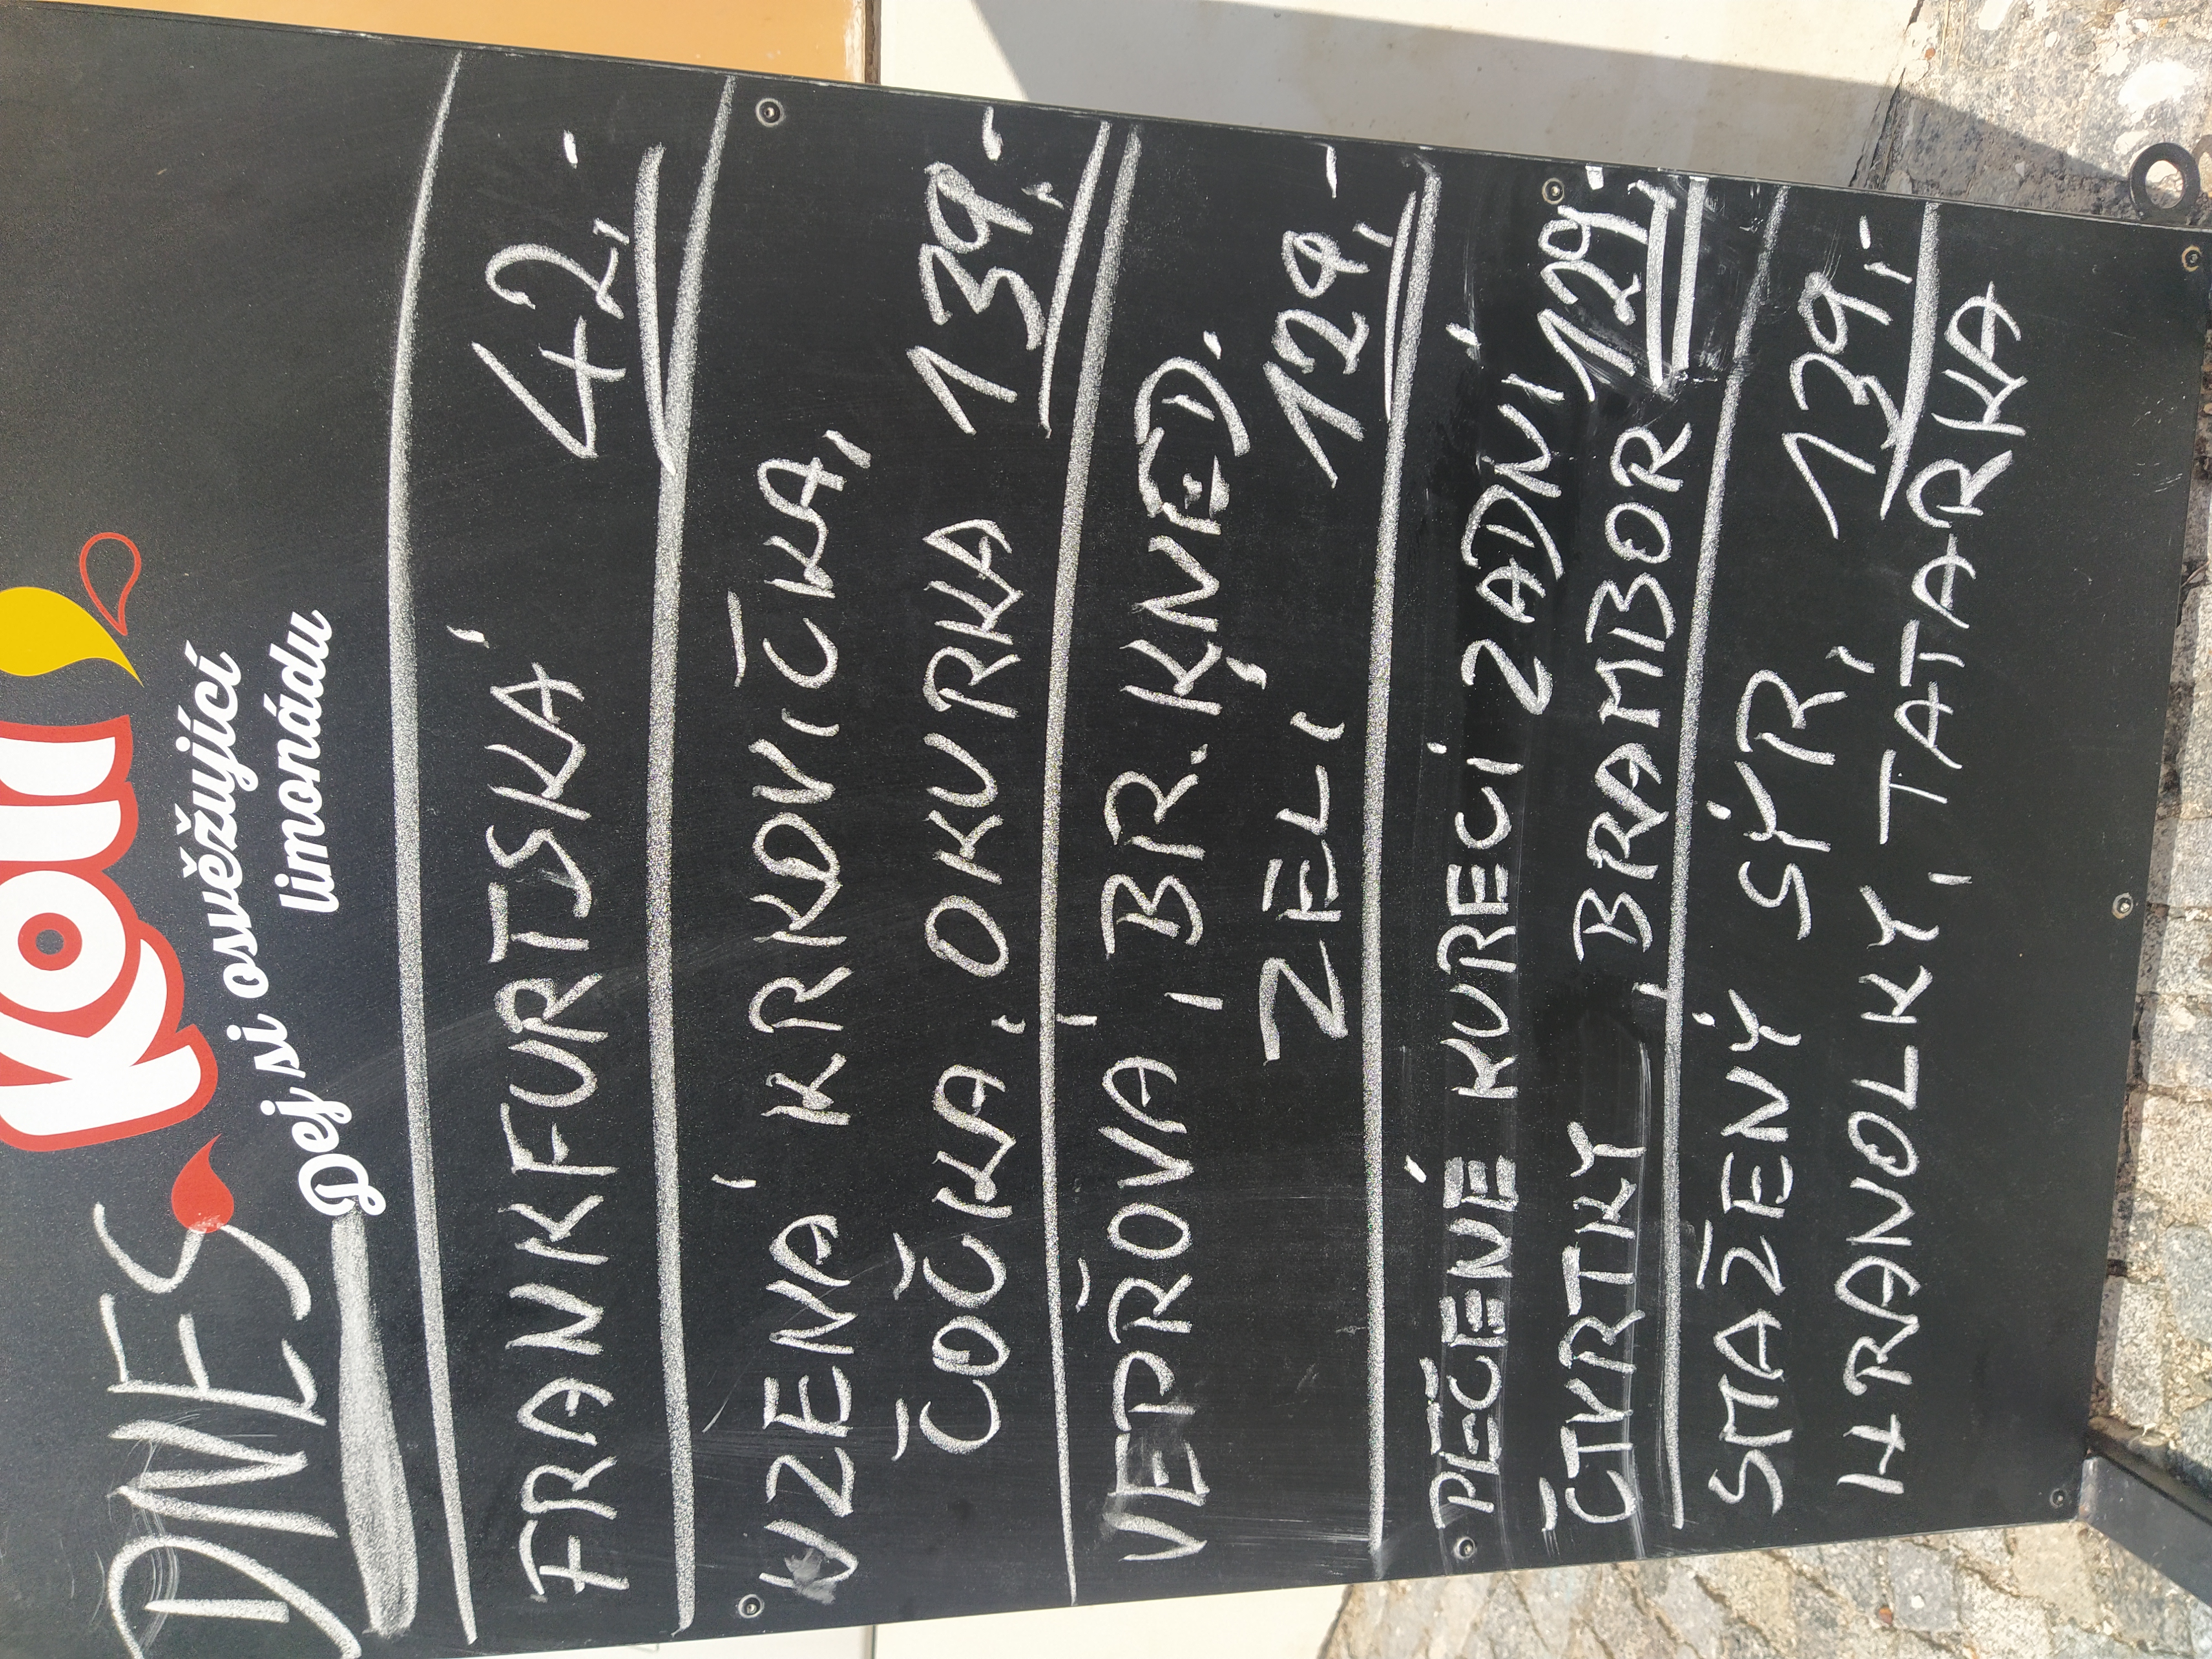 Kofola
Dej si osvěžující
limonádu
DNES
FRANKFURTSKÁ 42,-
UZENÁ KRKOVIČKA,
ČOČKA, OKURKA 139,-
VEPŘOVÁ, BR. KNED.
ZELÍ 129,-
PEČENÉ KUŘECÍ ZADNÍ
ČTVRTKY, BRAMBOR 129,-
SMAŽENÝ SÝR, 139,-
HRANOLKY, TATARKA